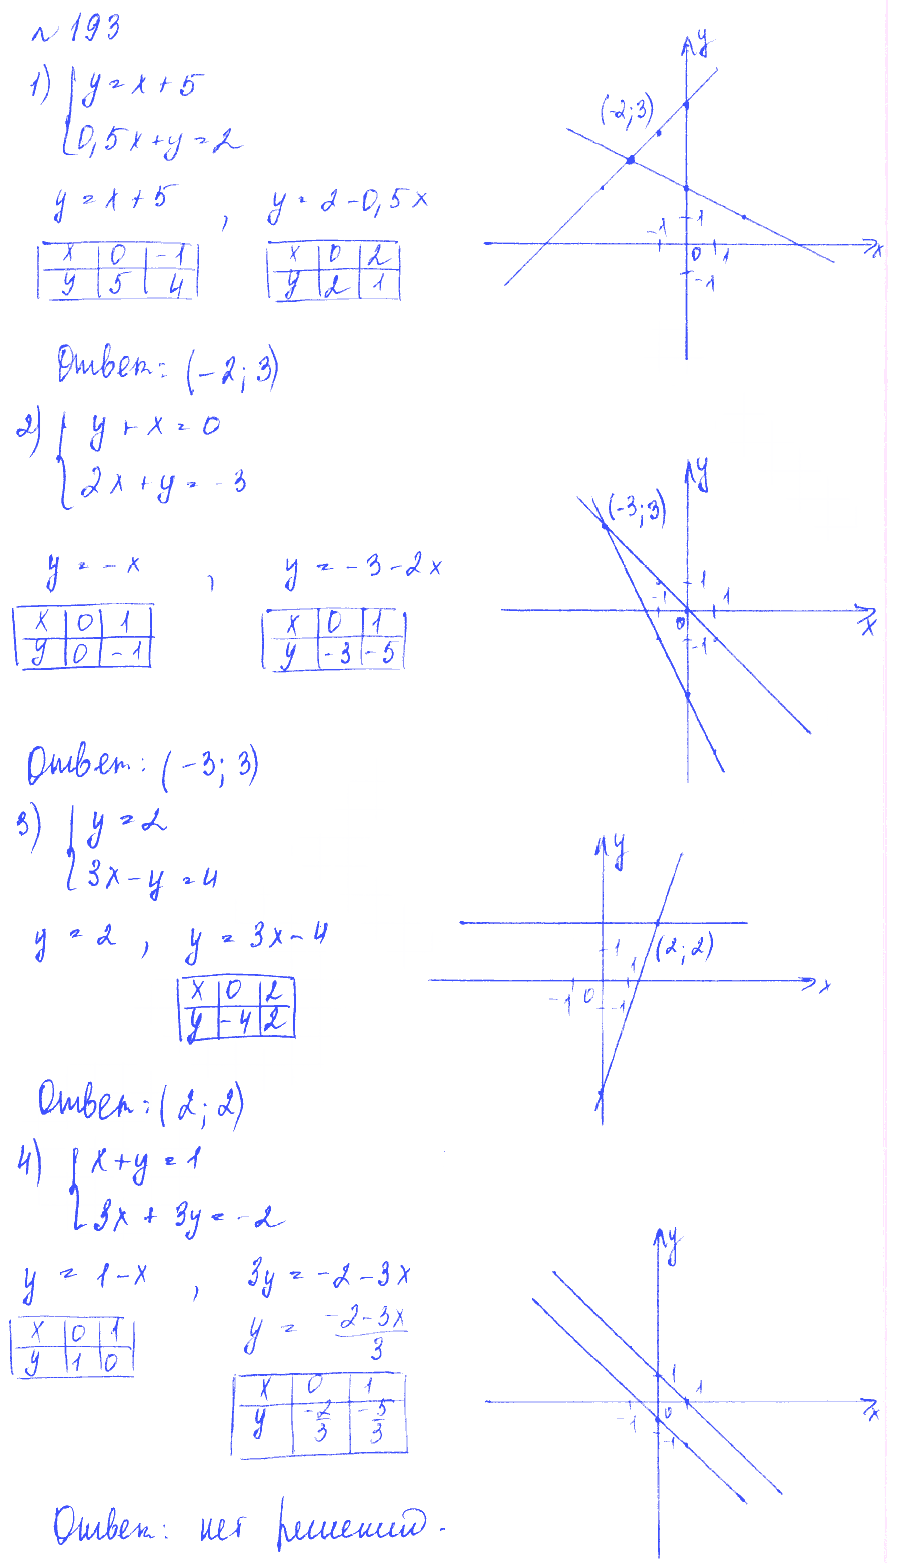 №193
1) { y = x + 5
0,5x + y = 2
y = x + 5 , y = 2 - 0,5x
x 0 -1
y 5 4
x 0 2
y 2 1
(-2; 3)
y
x
-1 0 1
1
-1
Ответ: (-2; 3)
2) { y + x = 0
2x + y = -3
y = -x , y = -3 - 2x
x 0 1
y 0 -1
x 0 1
y -3 -5
(-3; 3)
y
x
-1 0 1
1
-1
Ответ: (-3; 3)
3) { y = 2
3x - y = 4
y = 2 , y = 3x - 4
x 0 2
y -4 2
(2; 2)
y
x
-1 0 1
1
-1
Ответ: (2; 2)
4) { x + y = 1
3x + 3y = -2
y = 1 - x , 3y = -2 - 3x
y = -2-3x/3
x 0 1
y 1 0
x 0 1
y -2/3 -5/3
y
x
-1 0 1
1
-1
Ответ: нет решений.